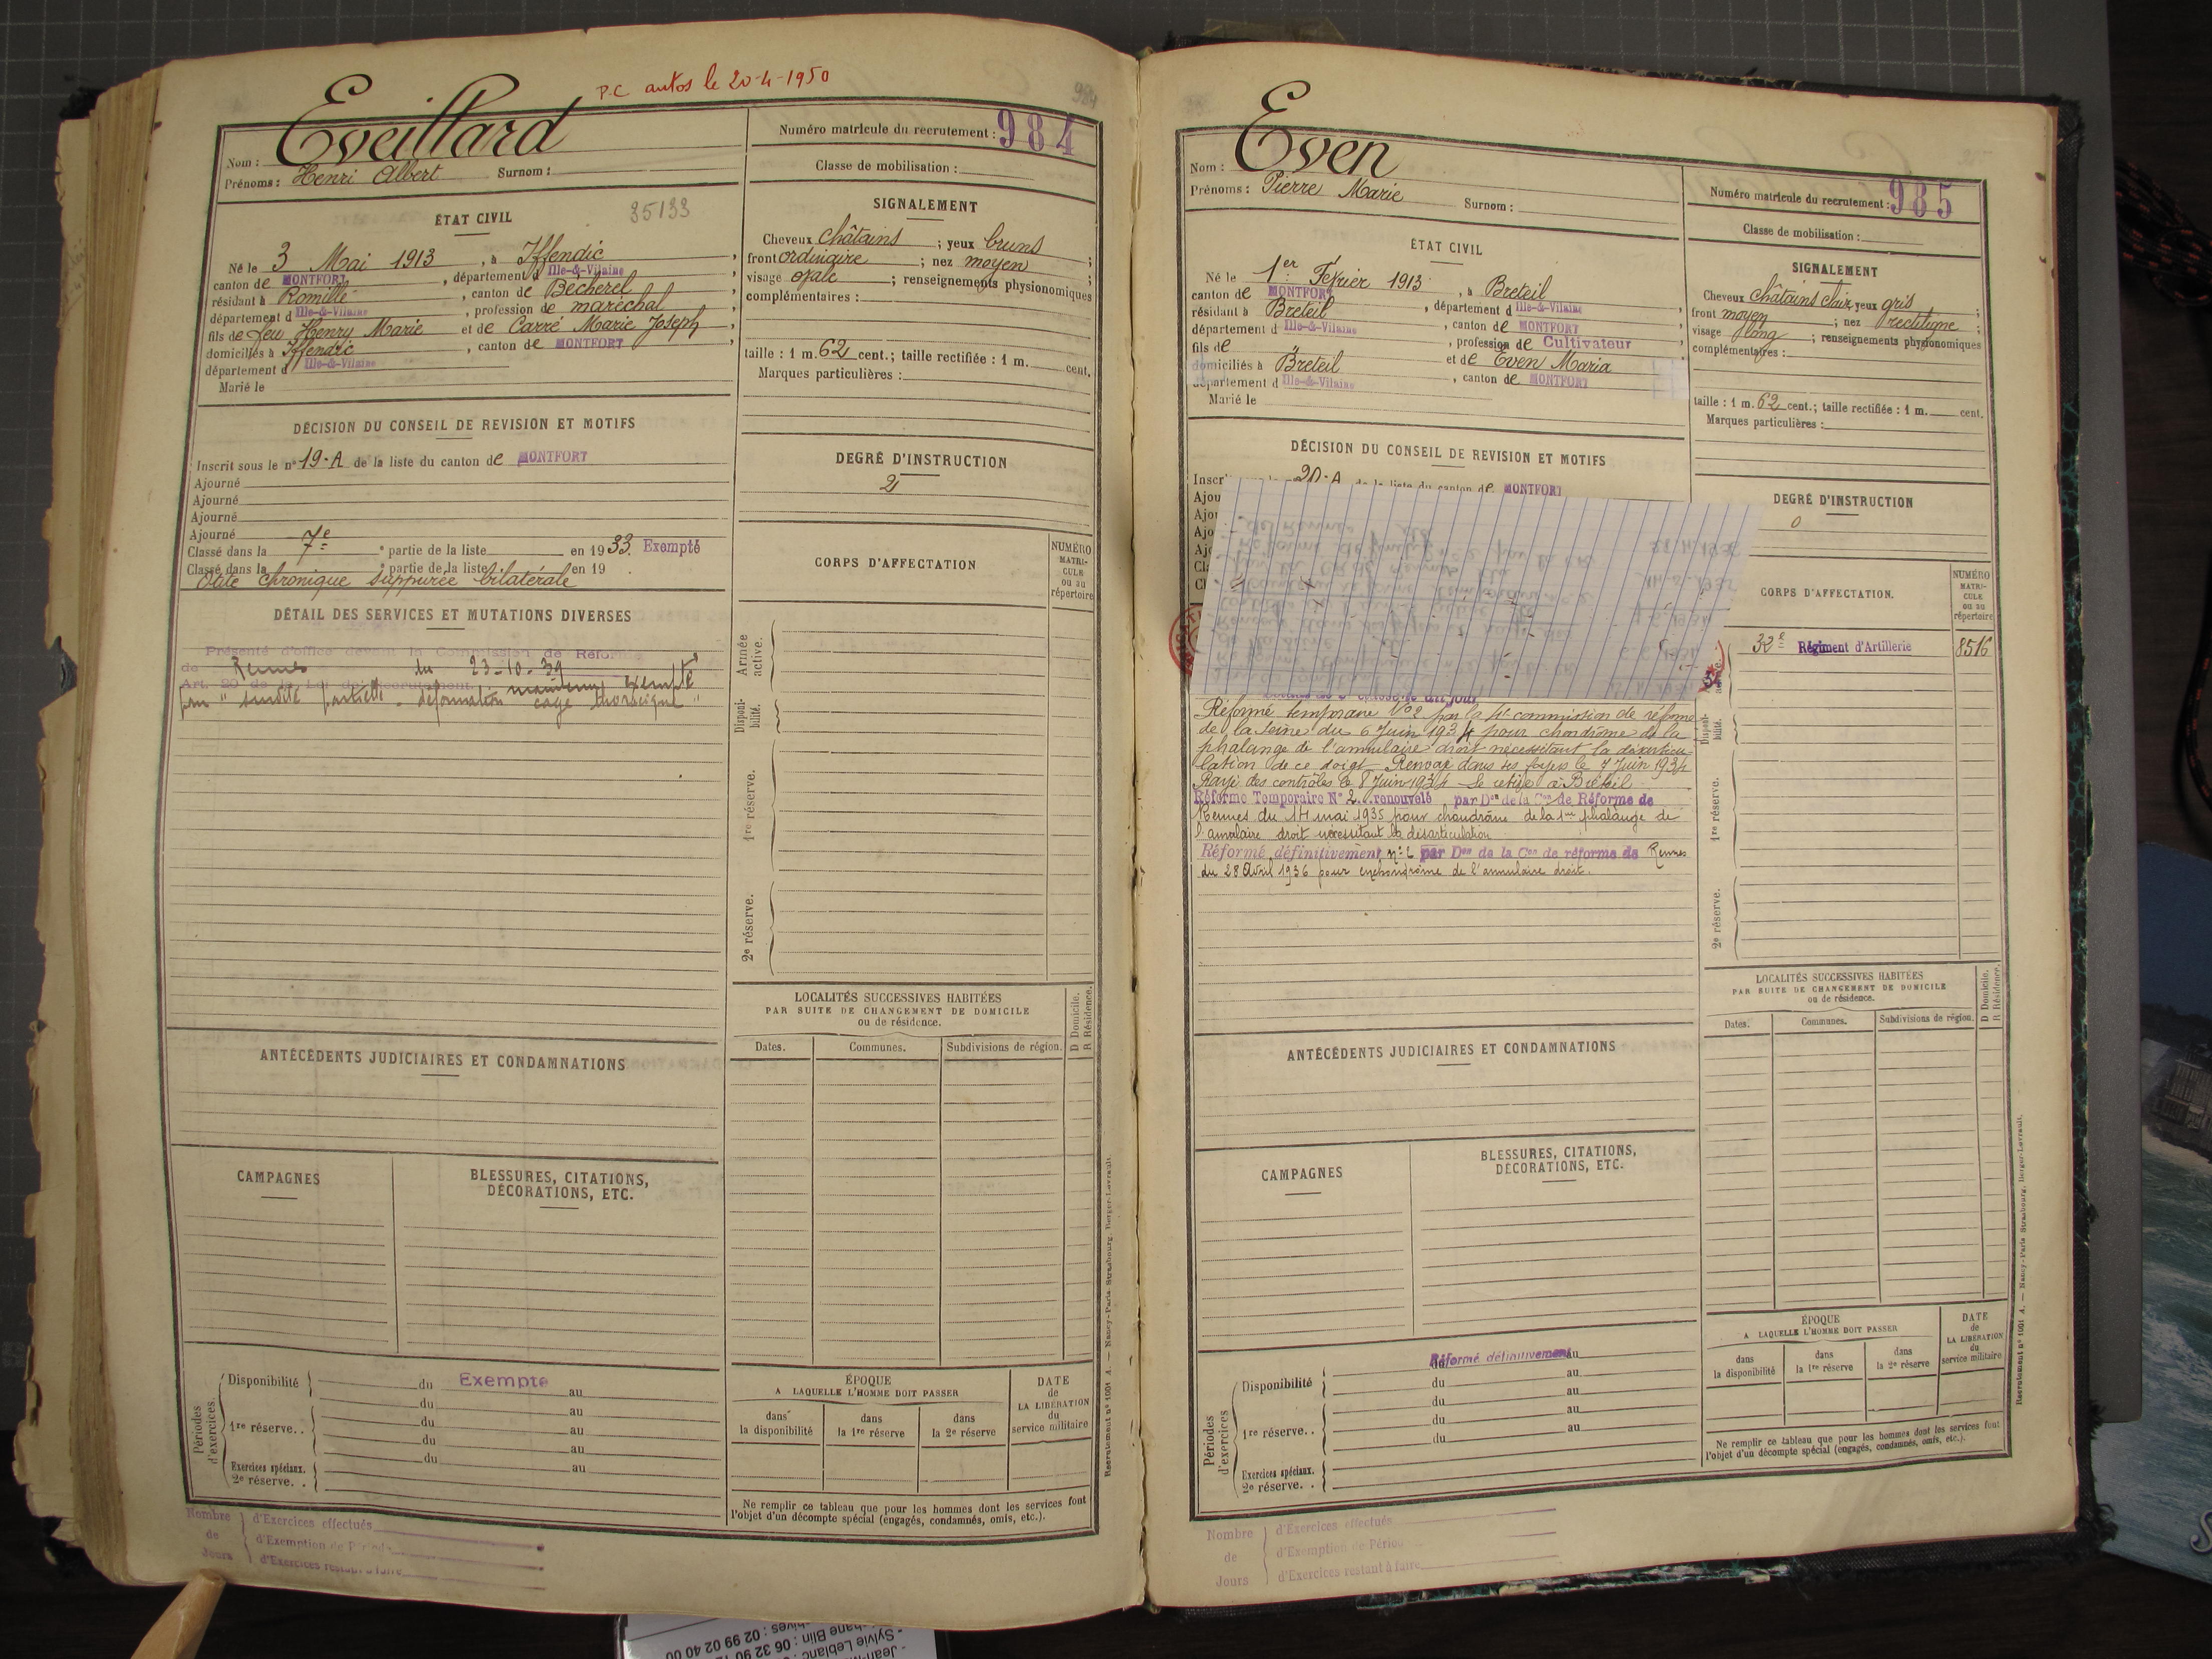 P.C autos le 20-4-1950
984
Nom : Eveillard
Prénoms : Henri Albert Surnom :
Numéro matricule du recrutement : 984
Classe de mobilisation :
ÉTAT CIVIL
35133
Né le 3 Mai 1913, à Iffendic,
canton de MONTFORT, département d Ille-&-Vilaine,
résidant à Romillé, canton de Bécherel,
département d Ille-&-Vilaine, profession de maréchal,
fils de feu Henry Marie et de Carré Marie Joseph,
domiciliés à Iffendic, canton de MONTFORT,
département d Ille-&-Vilaine
Marié le
SIGNALEMENT
Cheveux châtains ; yeux bruns ;
front ordinaire ; nez moyen ;
visage ovale ; renseignements physionomiques
complémentaires :
taille : 1 m. 62 cent.; taille rectifiée : 1 m. cent.
Marques particulières :
DÉCISION DU CONSEIL DE REVISION ET MOTIFS
Inscrit sous le n° 19-A de la liste du canton de MONTFORT
Ajourné
Ajourné
Ajourné
Ajourné
Classé dans la 7e partie de la liste en 1933. Exempté
Classé dans la partie de la liste en 19 .
Otite chronique suppurée bilatérale
DEGRÉ D'INSTRUCTION
2
DÉTAIL DES SERVICES ET MUTATIONS DIVERSES
Présenté d'office devant la Commission de Réforme
de Rennes du 23-10-39
Art. 20 de la Loi de Recrutement maintenu exempté
pour "surdité partielle - déformation cage thoracique"
CORPS D'AFFECTATION
NUMÉRO MATRI-CULE ou au répertoire
Armée active.
Disponi-bilité.
1re réserve.
2e réserve.
LOCALITÉS SUCCESSIVES HABITÉES
PAR SUITE DE CHANGEMENT DE DOMICILE
ou de résidence.
D Domicile. R Résidence.
Dates. Communes. Subdivisions de région.
ANTÉCÉDENTS JUDICIAIRES ET CONDAMNATIONS
CAMPAGNES
BLESSURES, CITATIONS,
DÉCORATIONS, ETC.
Périodes d'exercices.
Disponibilité du Exempté au
du au
1re réserve. . du au
du au
du au
Exercices spéciaux.
2e réserve. .
ÉPOQUE
A LAQUELLE L'HOMME DOIT PASSER
dans la disponibilité
dans la 1re réserve
dans la 2e réserve
DATE de LA LIBÉRATION du service militaire
Ne remplir ce tableau que pour les hommes dont les services font
l'objet d'un décompte spécial (engagés, condamnés, omis, etc.).
Nombre de Jours
d'Exercices effectués
d'Exemption de Périod
d'Exercices restant à faire
Recrutement n° 1001 A. — Nancy-Paris-Strasbourg, Berger-Levrault.
Nom : Even
Prénoms : Pierre Marie Surnom :
Numéro matricule du recrutement : 985
Classe de mobilisation :
ÉTAT CIVIL
Né le 1er Février 1913, à Breteil
canton de MONTFORT, département d Ille-&-Vilaine,
résidant à Breteil, canton de MONTFORT
département d Ille-&-Vilaine, profession de Cultivateur
fils de et de Even Maria
domiciliés à Breteil, canton de MONTFORT
département d Ille-&-Vilaine
Marié le
SIGNALEMENT
Cheveux châtains clair yeux gris ;
front moyen ; nez rectiligne ;
visage long ; renseignements physionomiques
complémentaires :
taille : 1 m. 62 cent.; taille rectifiée : 1 m. cent.
Marques particulières :
DÉCISION DU CONSEIL DE REVISION ET MOTIFS
Inscr 20-A de la liste du canton de MONTFORT
DEGRÉ D'INSTRUCTION
0
CORPS D'AFFECTATION.
NUMÉRO MATRI-CULE ou au répertoire
32e Régiment d'Artillerie 8516
Réformé temporaire N°2 par la commission de réforme
de la Seine du 6 Juin 1934 pour chondrôme de la
phalange de l'annulaire droit nécessitant la désarticu-
lation de ce doigt. Renvoyé dans ses foyers le 7 Juin 1934
Rayé des contrôles le 8 Juin 1934 Se retire à Breteil
Réforme Temporaire N° 2 renouvelé par Don de la Con de Réforme de
Rennes du 14 mai 1935 pour chondrôme de la 1re phalange de
l'annulaire droit nécessitant la désarticulation
Réformé définitivement n° 2 par Don de la Con de réforme de Rennes
du 28 Avril 1936 pour enchondrôme de l'annulaire droit.
Disponi-bilité.
1re réserve.
2e réserve.
LOCALITÉS SUCCESSIVES HABITÉES
PAR SUITE DE CHANGEMENT DE DOMICILE
ou de résidence.
D Domicile. R Résidence.
Dates. Communes. Subdivisions de région.
ANTÉCÉDENTS JUDICIAIRES ET CONDAMNATIONS
CAMPAGNES
BLESSURES, CITATIONS,
DÉCORATIONS, ETC.
Périodes d'exercices
Réformé définitivement
du au
Disponibilité du au
du au
1re réserve. . du au
du au
Exercices spéciaux.
2e réserve. .
ÉPOQUE
A LAQUELLE L'HOMME DOIT PASSER
dans la disponibilité
dans la 1re réserve
dans la 2e réserve
DATE de LA LIBÉRATION du service militaire
Ne remplir ce tableau que pour les hommes dont les services font
l'objet d'un décompte spécial (engagés, condamnés, omis, etc.).
Nombre de Jours
d'Exercices effectués
d'Exemption de Périod
d'Exercices restant à faire
Recrutement n° 1001 A. — Nancy-Paris-Strasbourg, Berger-Levrault.
Sylvie Leblanc
02 99 02 40 00